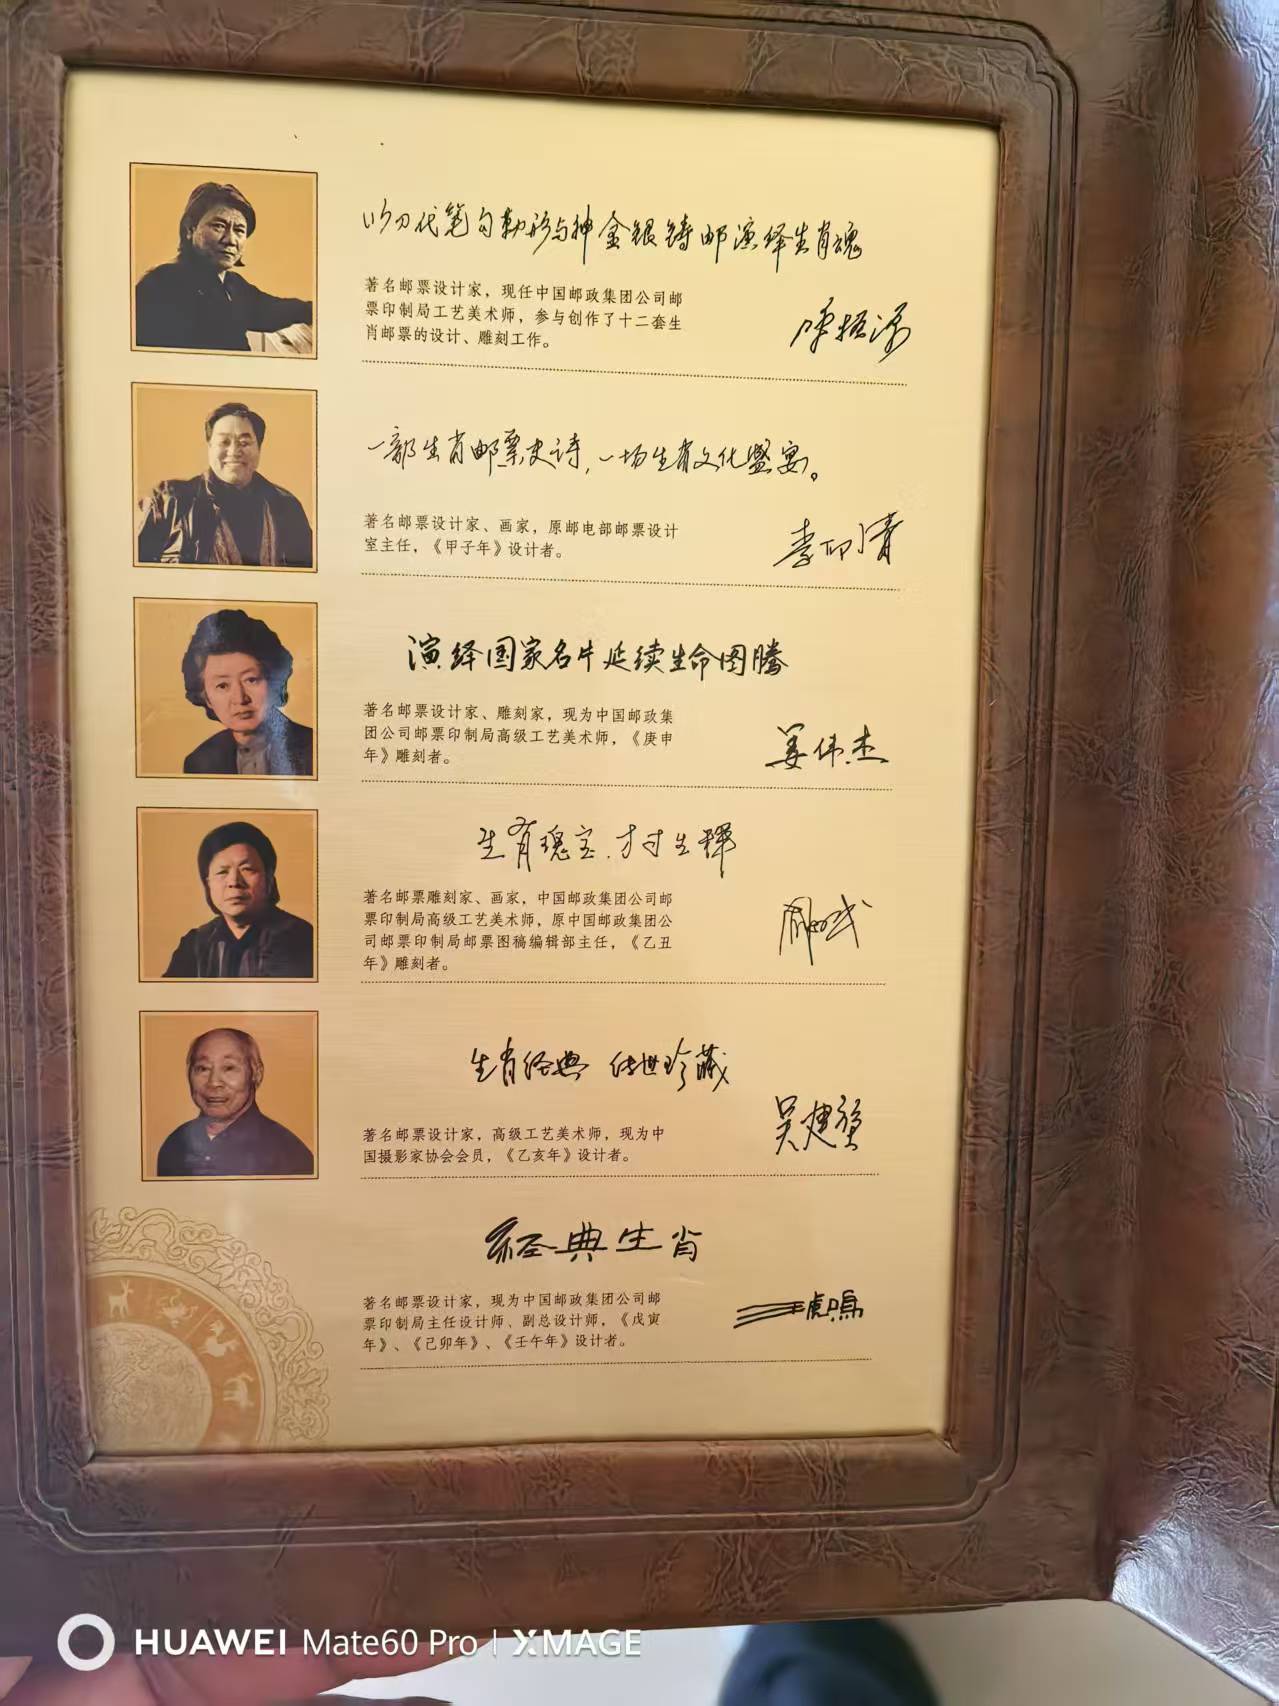 以刀代笔勾勒形与神金银铸邮演绎生肖魂
著名邮票设计家，现任中国邮政集团公司邮
票印制局工艺美术师，参与创作了十二套生
肖邮票的设计、雕刻工作。
一部生肖邮票史诗，一场生肖文化盛宴。
著名邮票设计家、画家，原邮电部邮票设计
室主任，《甲子年》设计者。
李印清
演绎国家名片延续生命图腾
著名邮票设计家、雕刻家，现为中国邮政集
团公司邮票印制局高级工艺美术师，《庚申
年》雕刻者。
姜伟杰
生肖瑰宝.方寸生辉
著名邮票雕刻家、画家，中国邮政集团公司邮
票印制局高级工艺美术师，原中国邮政集团公
司邮票印制局邮票图稿编辑部主任，《乙丑
年》雕刻者。
生肖经典 传世珍藏
吴建坤
著名邮票设计家，高级工艺美术师，现为中
国摄影家协会会员，《乙亥年》设计者。
经典生肖
著名邮票设计家，现为中国邮政集团公司邮
票印制局主任设计师、副总设计师，《戊寅
年》、《己卯年》、《壬午年》设计者。
王虎鸣
HUAWEI Mate60 Pro | XMAGE